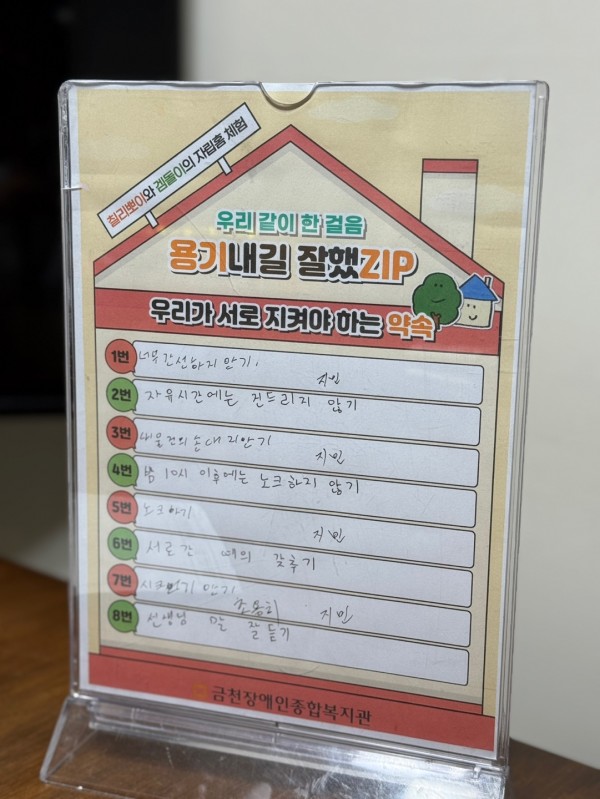 칠리뽀이와 겜돌이의 자립홈 체험
우리 같이 한 걸음
용기내길 잘했ZIP
우리가 서로 지켜야 하는 약속
1번 너무 간섭하지 않기.
지민
2번 자유시간에는 건드리지 않기
3번 내물건의 손대지안기
지민
4번 밤 10시 이후에는 노크하지 않기
5번 노크하기
지민
6번 서로간 예의 갖추기
7번 안기
지민
8번 선생님 말 조용히 잘 듣기
금천장애인종합복지관